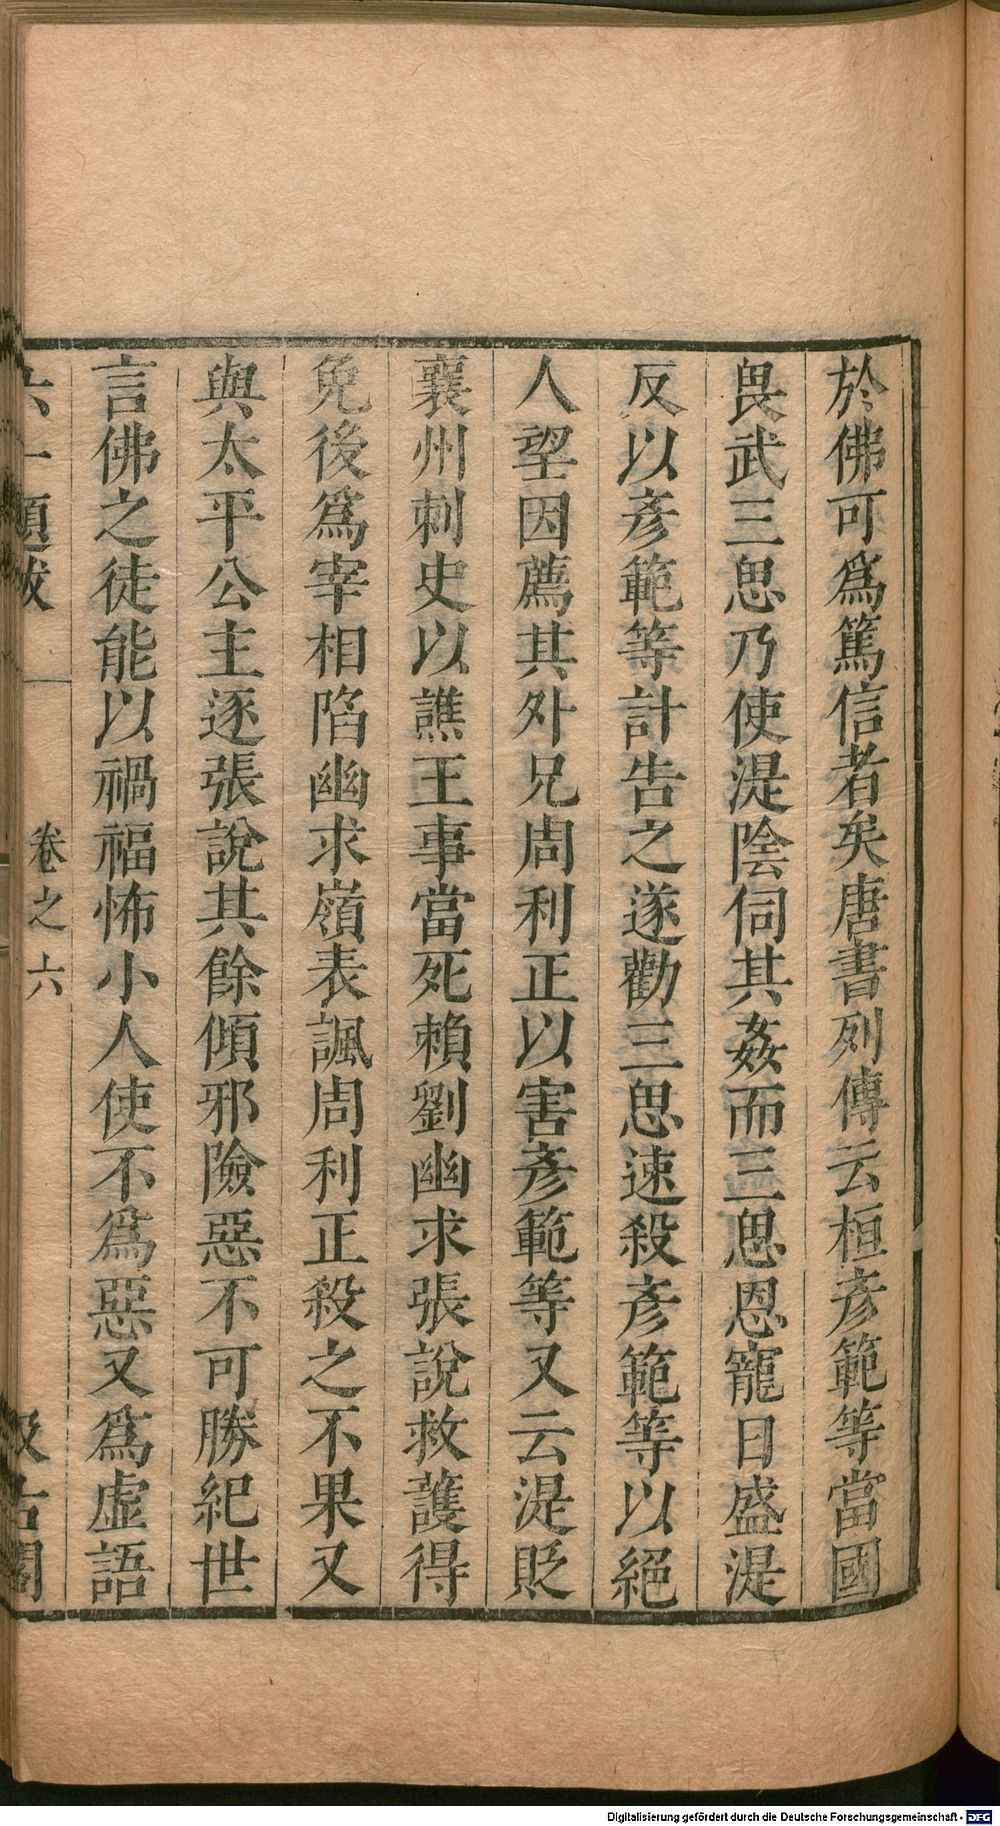 於佛可爲篤信者矣唐書列傳云桓彥範等當國
畏武三思乃使湜陰伺其姦而三思恩寵日盛湜
反以彥範等計告之遂勸三思速殺彥範等以絕
人望因薦其外兄周利正以害彥範等又云湜貶
襄州刺史以譙王事當死賴劉幽求張說救護得
免後爲宰相陷幽求嶺表諷周利正殺之不果又
與太平公主逐張說其餘傾邪險惡不可勝紀世
言佛之徒能以禍福怖小人使不爲惡又爲虛語
六一題跋 卷之六 汲古閣
Digitalisierung gefördert durch die Deutsche Forschungsgemeinschaft - DFG